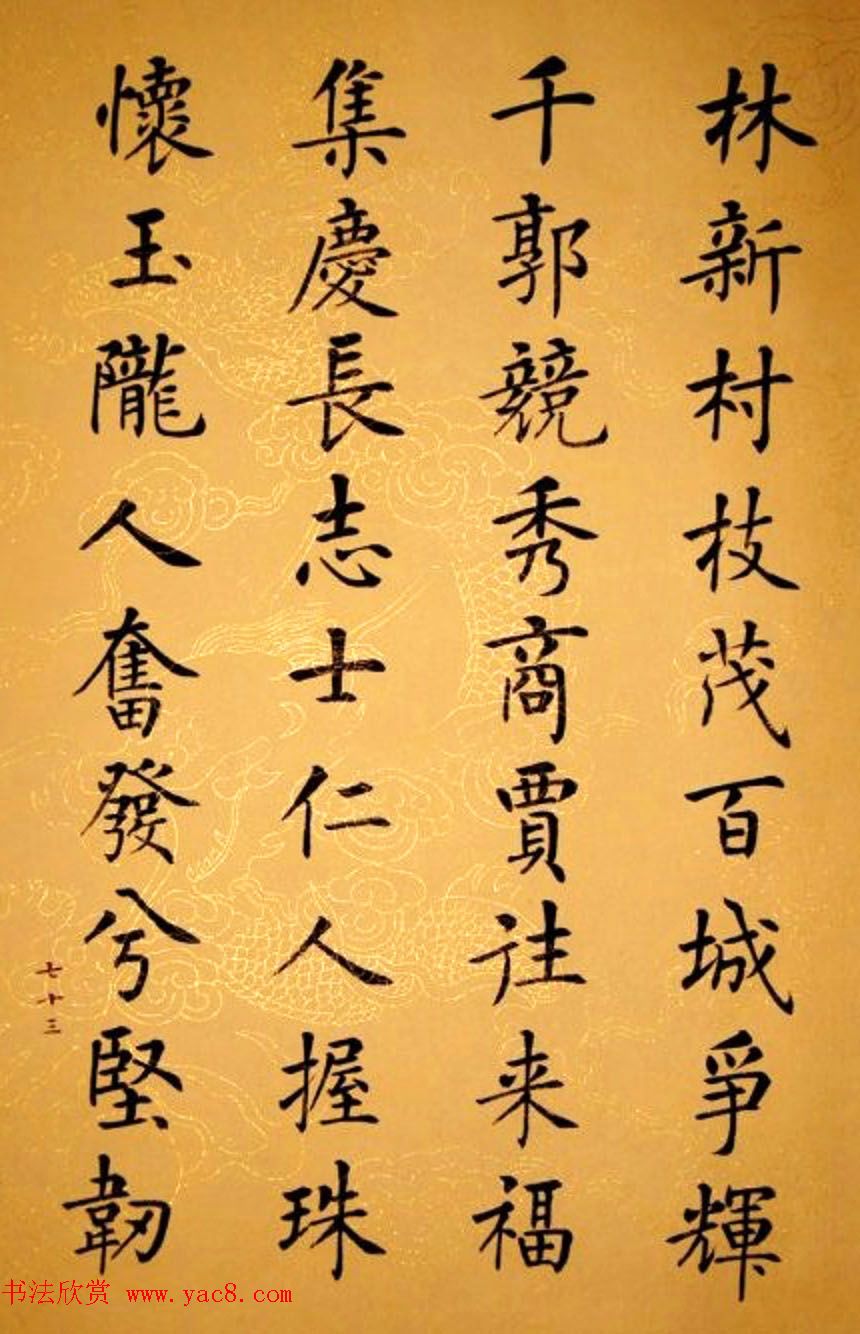 林新村枝茂百城爭輝
千郭競秀商賈往来福
集慶長志士仁人握珠
懷玉隴人奮發兮堅韌
七十三
书法欣赏 www.yac8.com